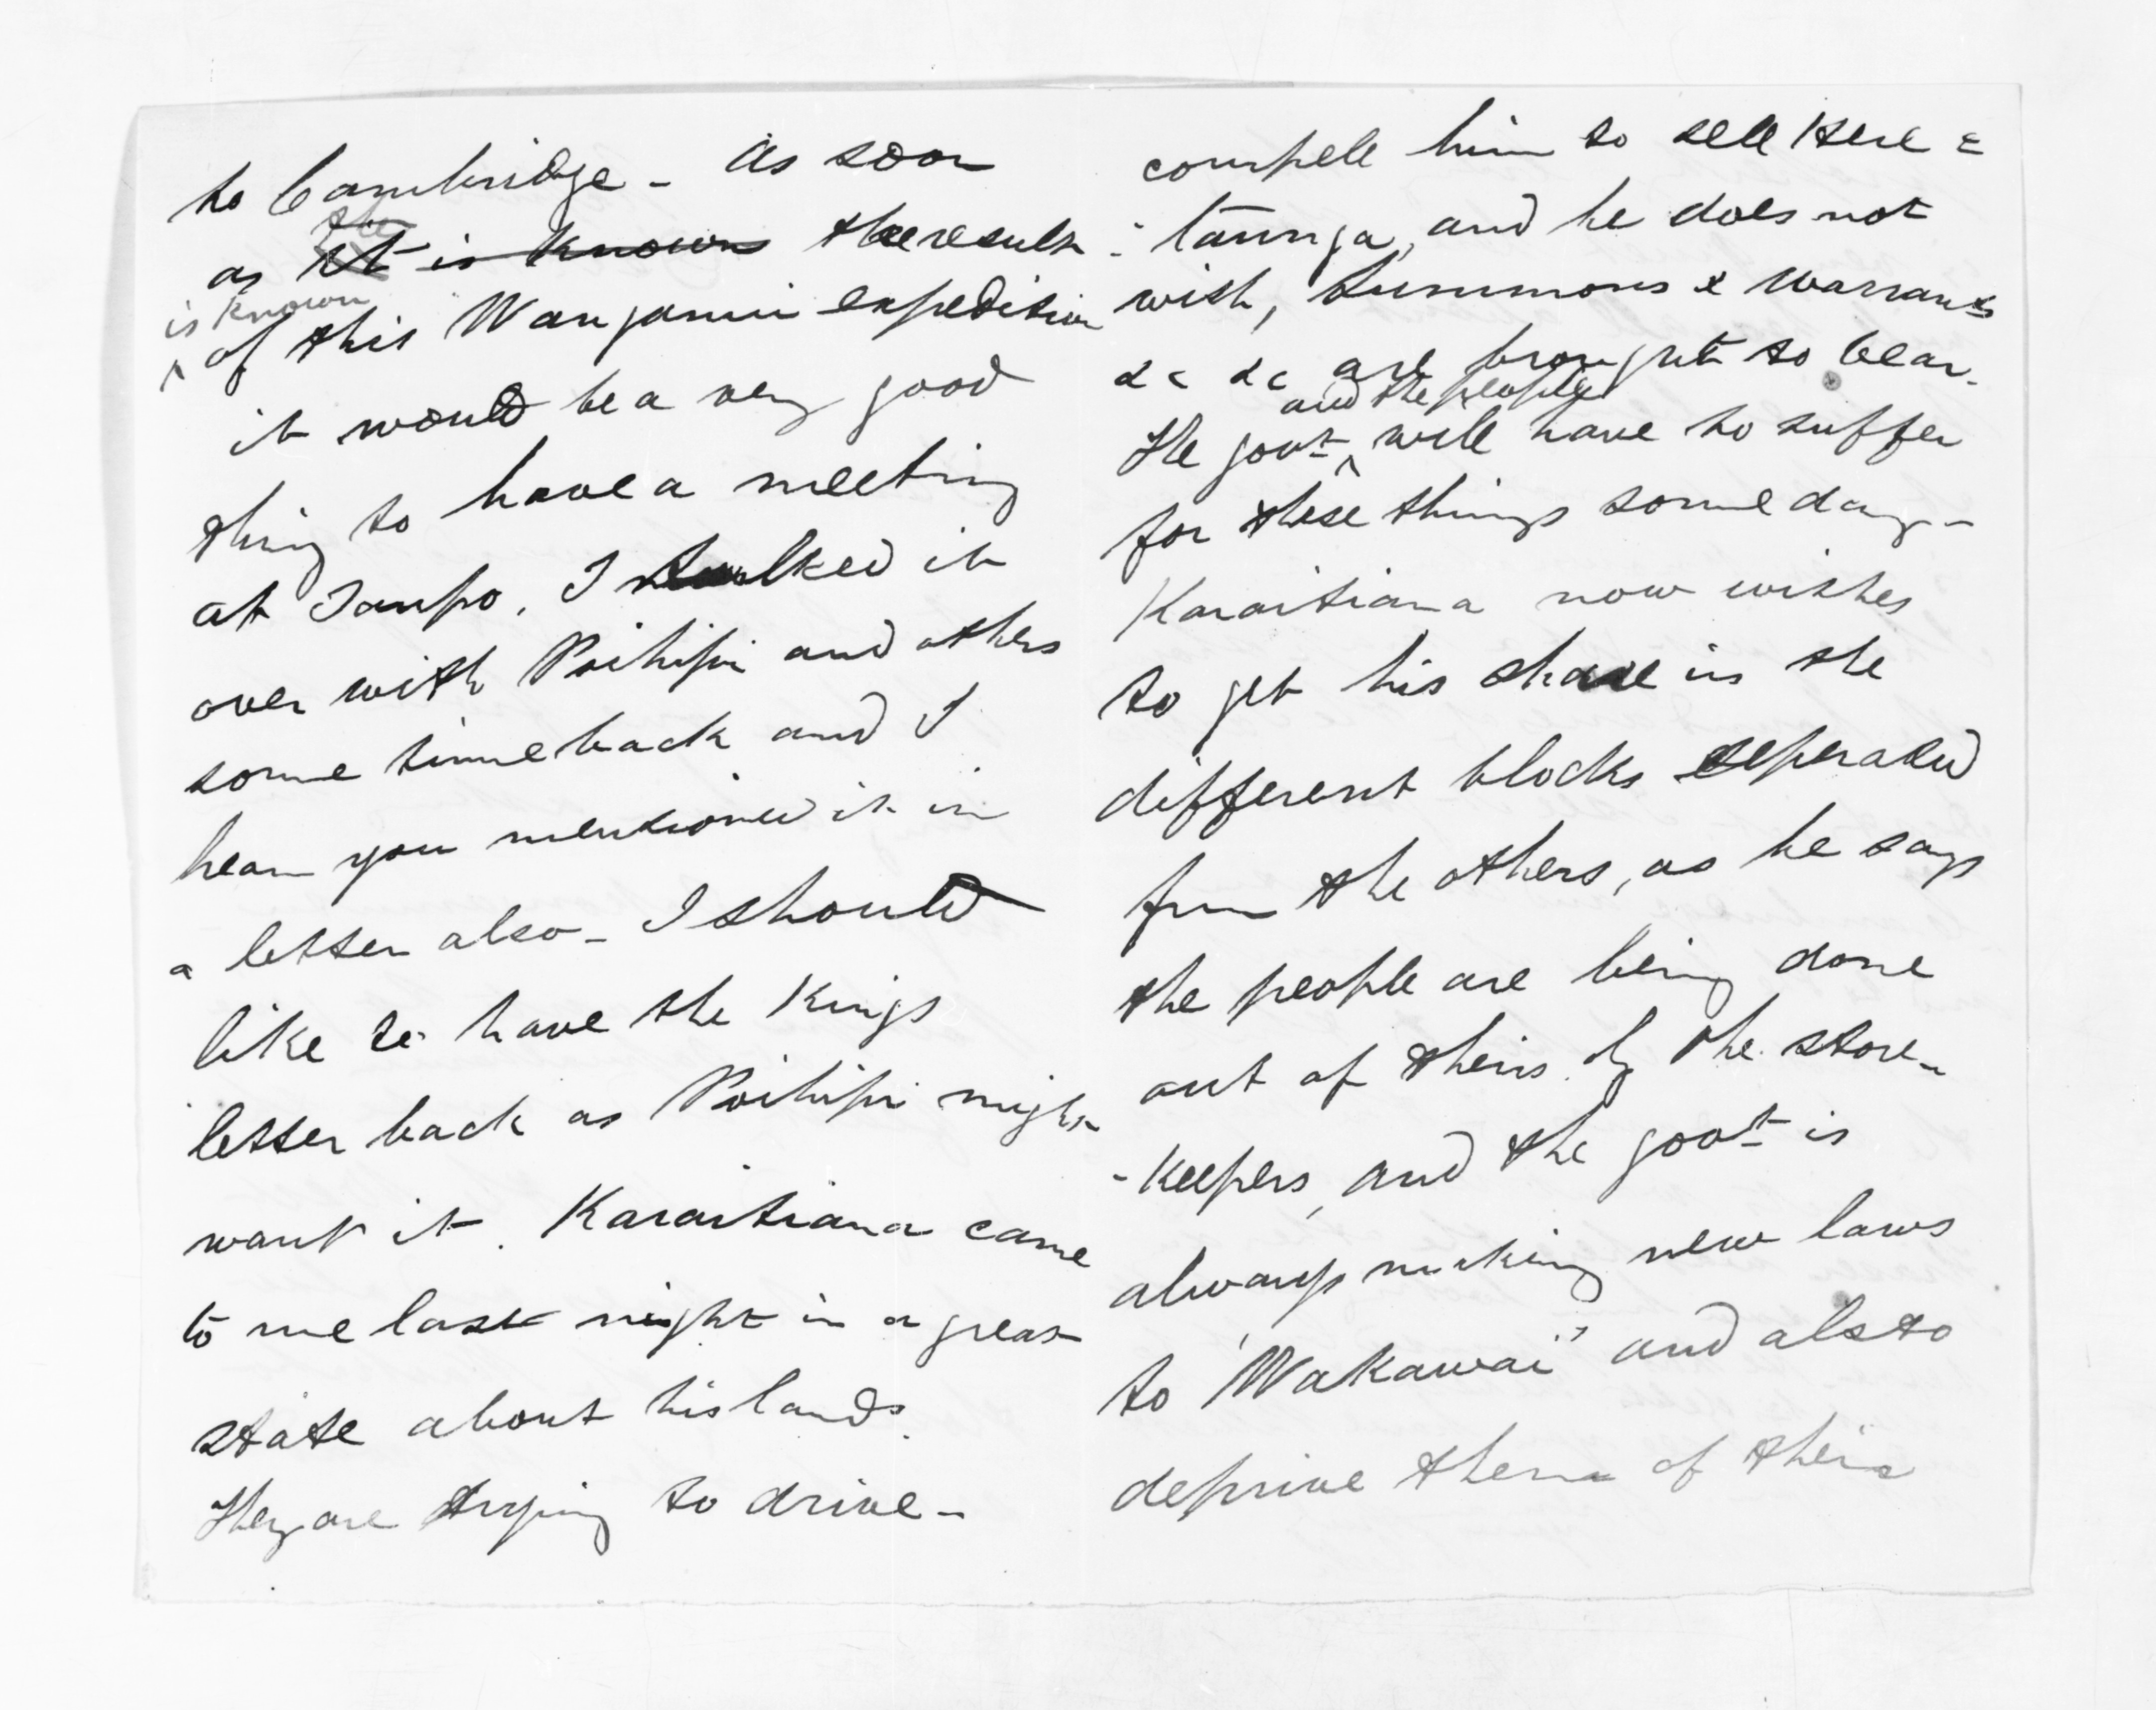 to Cambridge - As soon
the
as it is known the result
is known
of this Wanganui expedition
it would be a very good
thing to have a meeting
at Taupo, I talked it
over with Poihipi and others
some time back and I
hear you mentioned it in
a letter also - I should
like to have the Kings
letter back as Poihipi might
want it. Karaitiana came
to me last night in a great
state about his lands.
They are trying to drive -
compell him to sell
taunga, and he does not
wish, Summons & Warrants
&c &c are brought to bear.
and the people
The govt will have to suffer
for these things some day -
Karaitiana now wishes
to get his share in the
different blocks seperated
from the others, as he says
the people are being done
out of theirs by the store-
-keepers, and the govt is
always making new laws
to "Wakawai" and also to
deprive them of their